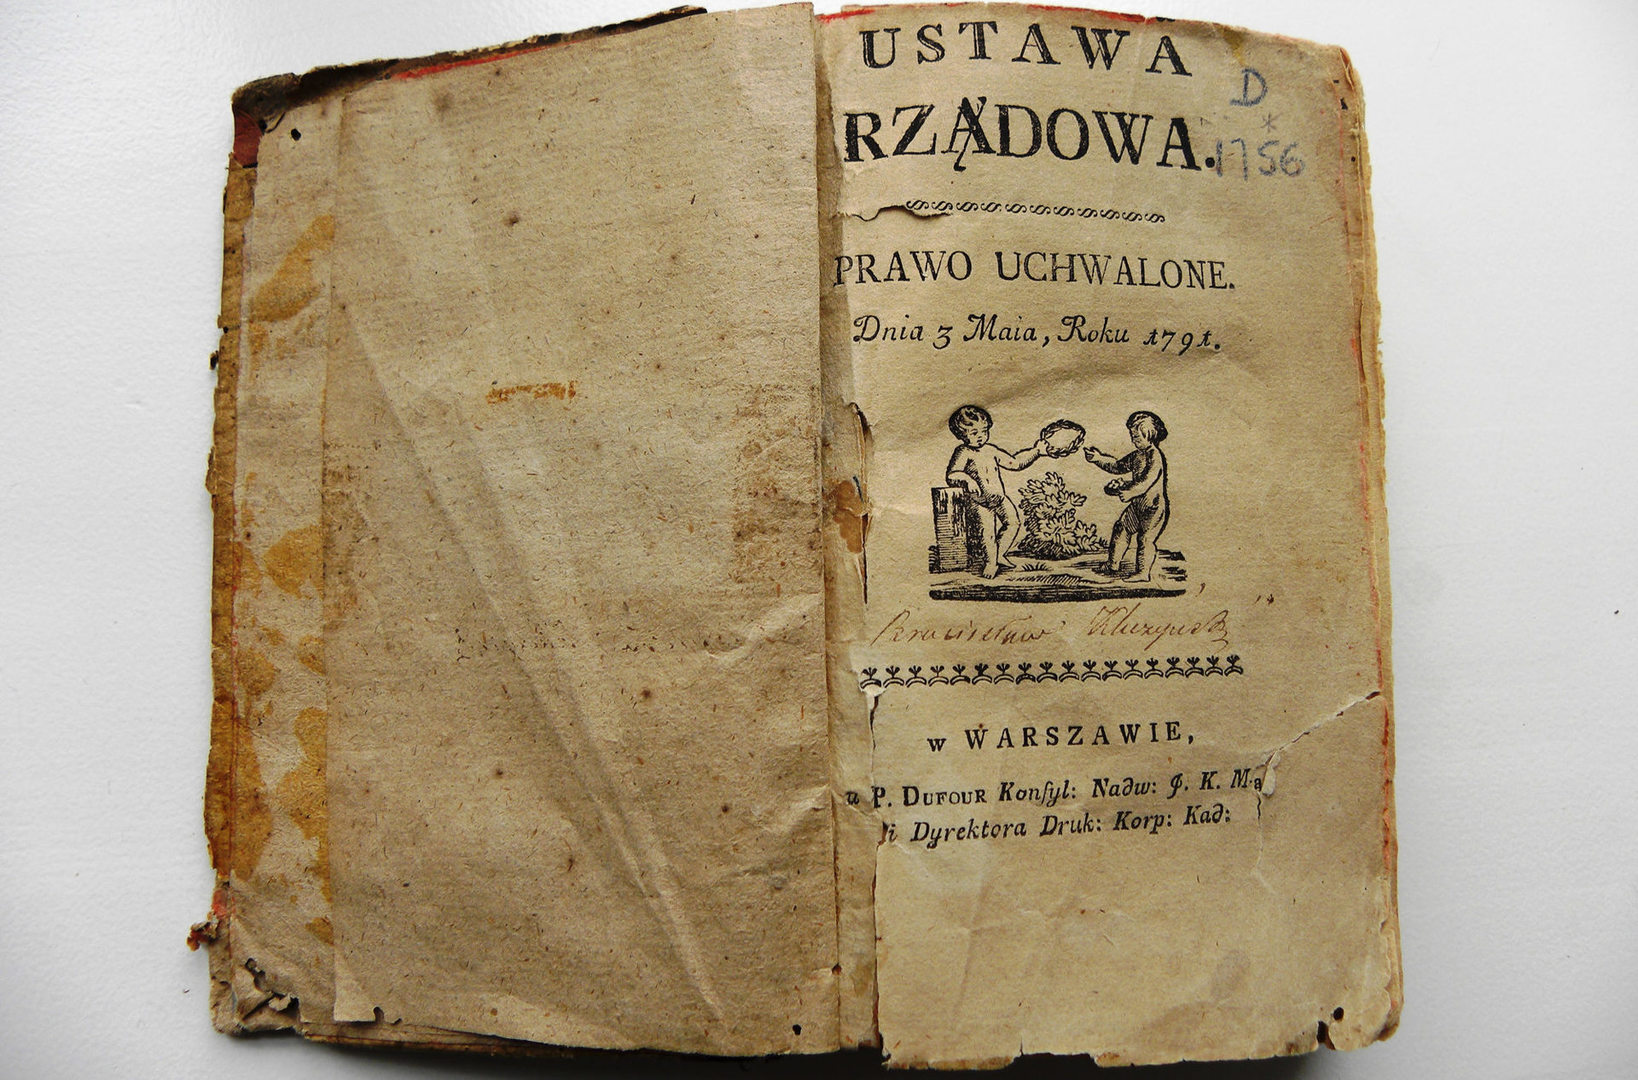 USTAWA
RZĄDOWA.
D
*
1756
PRAWO UCHWALONE.
Dnia 3 Maia, Roku 1791.
w WARSZAWIE,
u P. DUFOUR Konſyl: Nadw: J. K. Mą
i Dyrektora Druk: Korp: Kad: